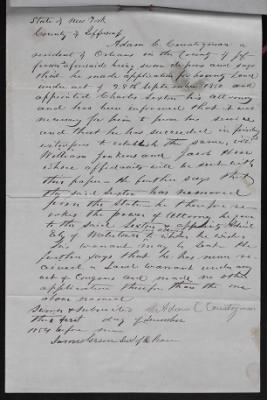 State of New York
County of Jefferson
Adam C Countryman a
resident of Orleans in the County of Jef-
ferson aforesaid being sworn deposes and says
that he made application for bounty Land
under act of 28th September 1850 and
appointed Charles Sexton his Attorney
and has been informed that it was
necessary for him to prove his service
and that he has succeeded in finding
witnesses to establish the same, viz
William Jenkins and Jacob
whose affidavits will be sent with
this paper he further says that
the said Sexton has removed
from the State he therefore re-
vokes the power of Attorney he gave
to the said Sexton
Esq of Watertown to whom he wishes
his warrant may be sent he
further says that he has never re-
ceived a Land warrant under any
act of Congress and made no other
application therefor than the one
above named
Sworn & Subscribed Adam C Countryman
this first day of December
1854 before me
James Green Just of the Peace